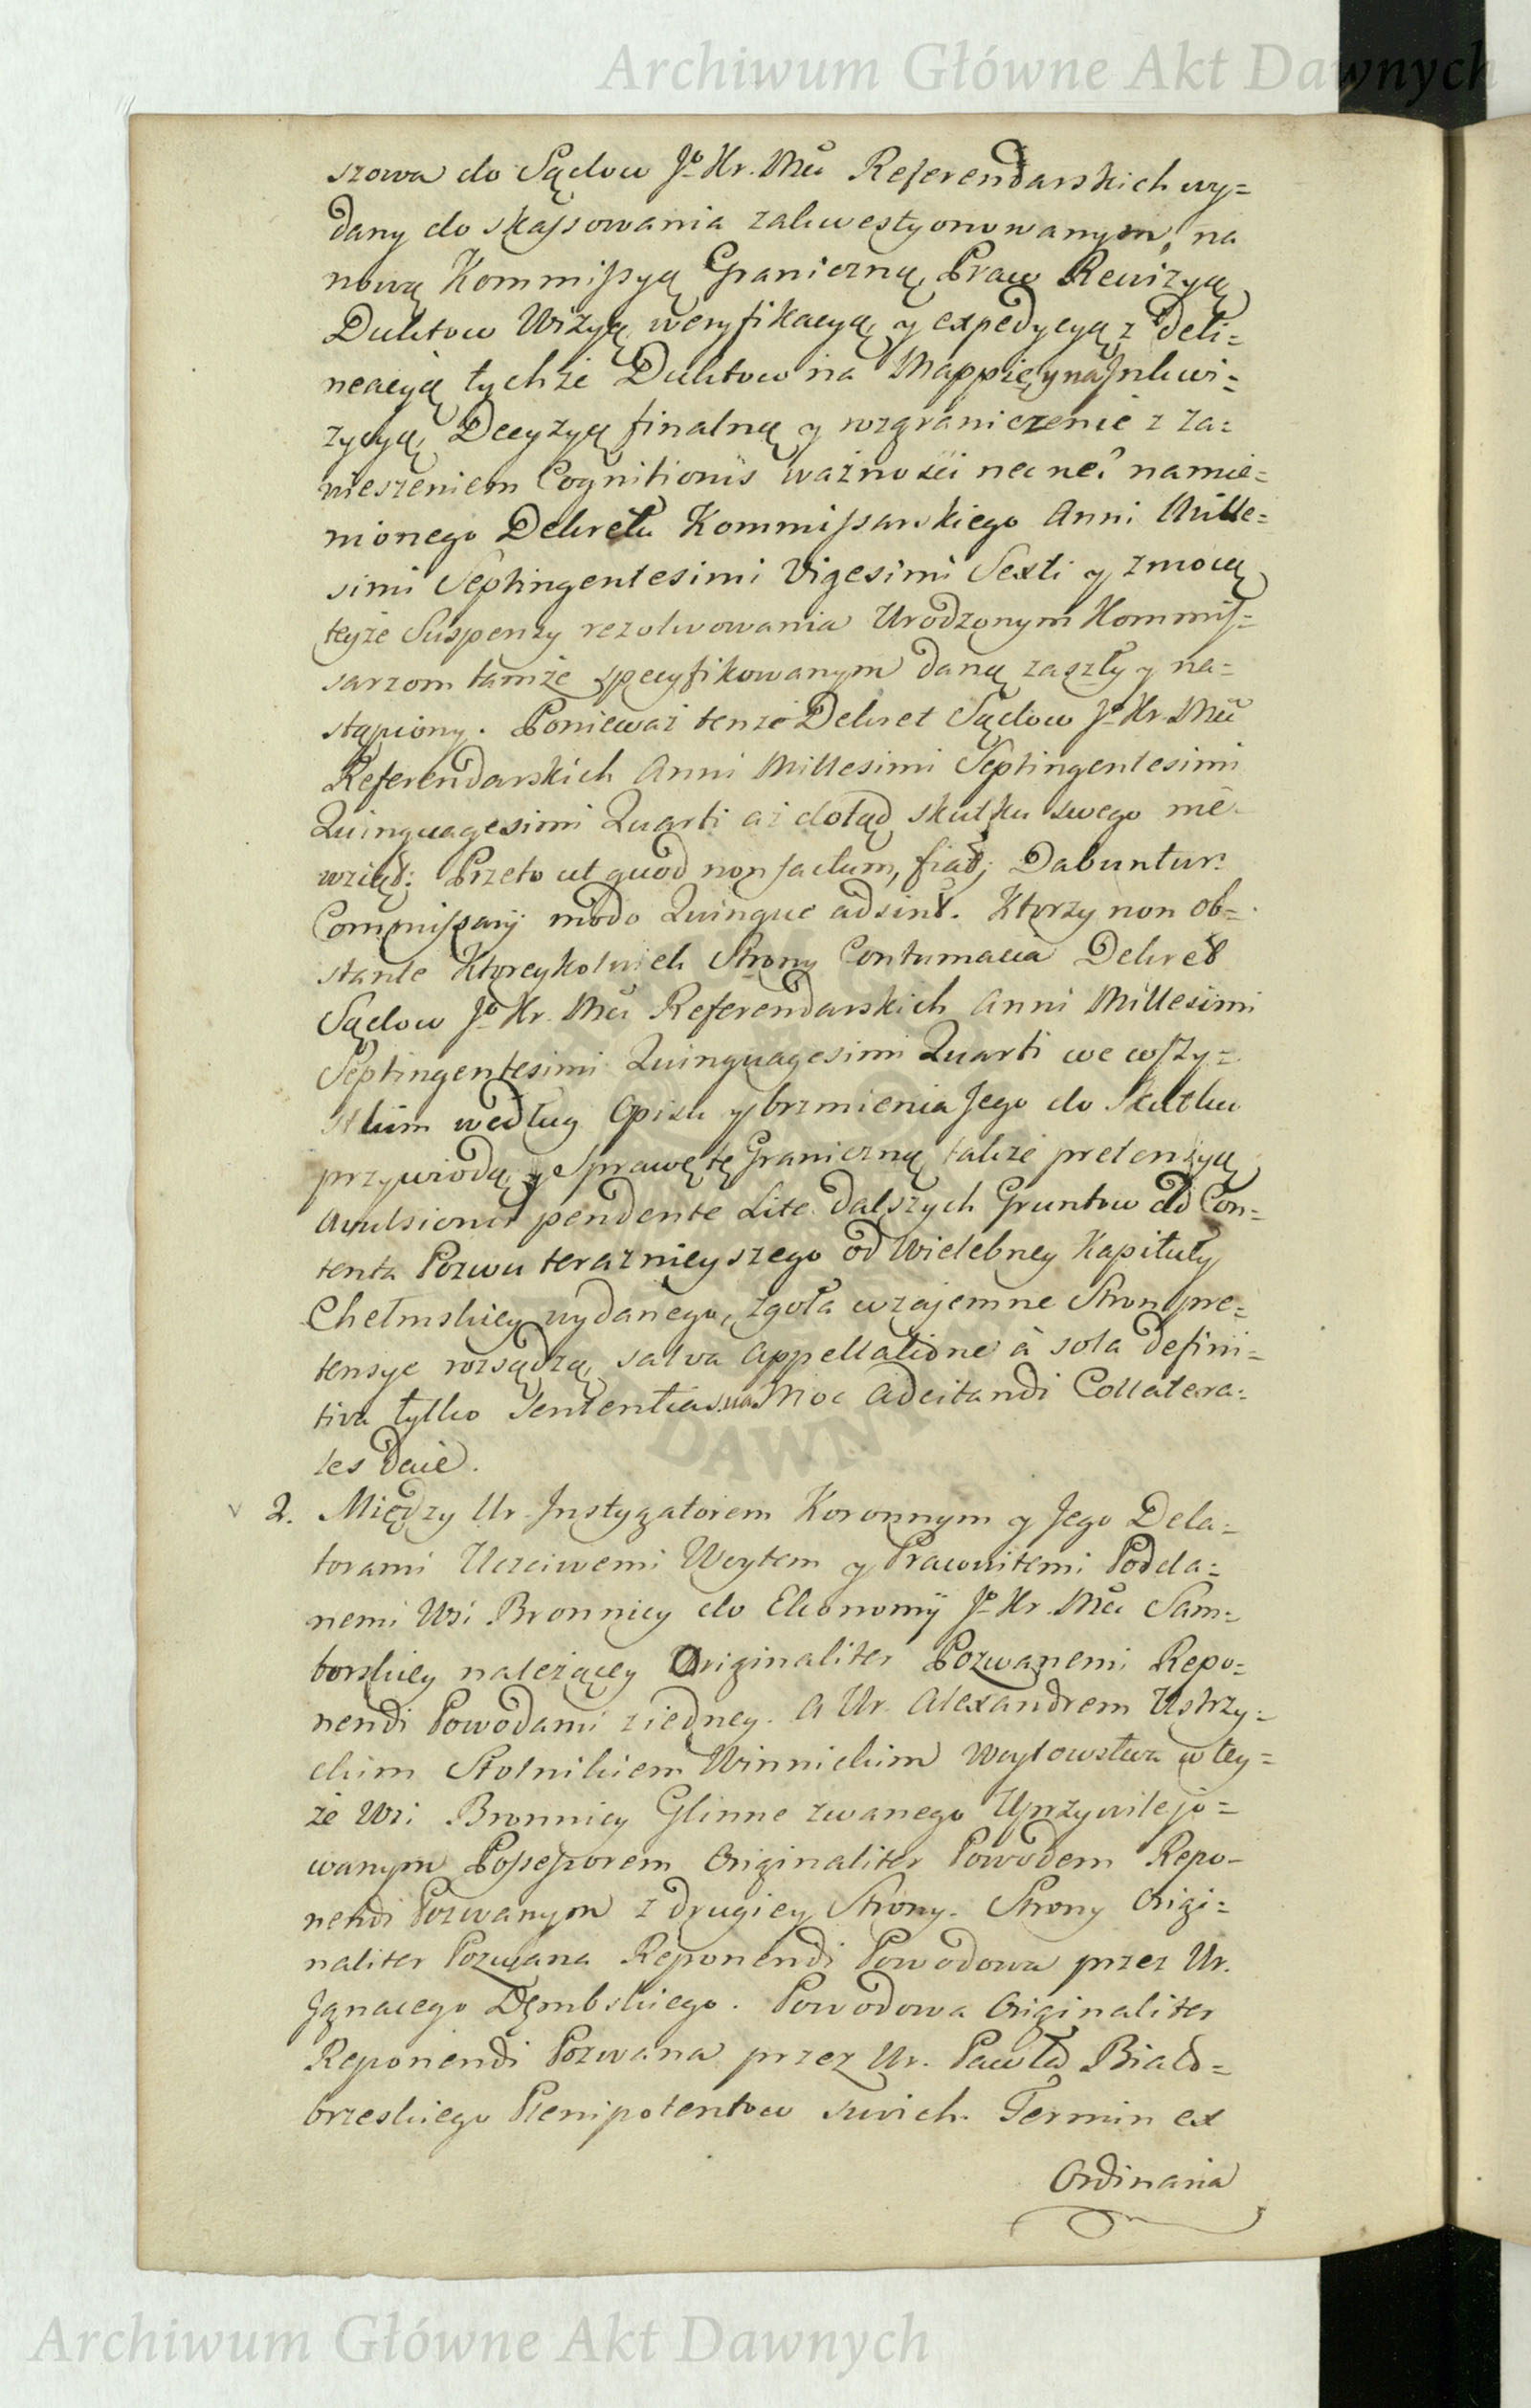 Archiwum Główne Akt Dawnych
szowa do Sądow Jo Kr. Mći Referendarskich wy=
dany do skassowania zakwestyonowanym, na
nową Kommissyą Graniczną, Praw Rewizyą,
Duktow Wizyą, weryfikacyą, y expedycyą z deli=
neacyą tychże Duktow na Mappie, y na Inkwi=
zycyą, Decyzyą finalną y rozgraniczenie z za=
wieszeniem Cognitionis ważnosći nec ne? namie=
nionego Dekretu Kommissarskiego Anni Mille=
simi Septingentesimi Vigesimi Sexti y z mocą
teyże Suspenzy rezolwowania Urodzonym Kommis=
sarzom tamże specyfikowanym daną zaszły y na=
stąpiony. Ponieważ tenże Dekret Sądow Jo Kr. Mći
Referendarskich Anni Millesimi Septingentesimi
Quinquagesimi Quarti aż dotąd skutku swego nie
wziął: Przeto ut quod non factum, fiat; Dabuntur
Commissarij modo Quinque adsint. Ktorzy non ob=
stante Ktoreykolwiek Strony Contumacia Dekret
Sądow Jo Kr. Mći Referendarskich Anni Millesimi
Septingentesimi Quinquagesimi Quarti we wszy=
stkim według Opisu y brzmienia Jego do Skutku
przywiodą, y Sprawę tę Graniczną także pretensyą
Avulsionis pendente Lite dalszych Gruntow ad Con=
tenta Pozwu teraznieyszego od Wielebney Kapituły
Chełmskiey wydanego, zgoła wzajemne Stron pre=
tensye rozsądzą, salva Appellatione à sola defini=
tiva tylko Sententia, na Moc adcitandi Collatera=
les daie.
2. Między Ur. Instygatorem Koronnym y Jego Dela=
torami Uczciwemi Woytem y Prawnitemi Podda=
nemi Wsi Bronnicy do Ekonomij Jo Kr. Mći Sam=
borskiey należącey Originaliter Pozwanemi Repo=
nendi Powodami z iedney. A Ur. Alexandrem Ustrzy=
ckim Stolnikiem Winnickim Woytowstwa w tey=
że Wsi Bronnicy Glinne zwanego Uprzywilejo=
wanym Possessorem Originaliter Powodem Repo=
nendi Pozwanym z drugiey Strony. Strony Origi=
naliter Pozwana Reponendi Powodowa przez Ur.
Ignacego Dęmbskiego. Powodowa Originaliter
Reponendi Pozwana przez Ur. Pawła Biało=
brzeskiego Plenipotentow swich. Termin ex
Ordinaria
Archiwum Główne Akt Dawnych